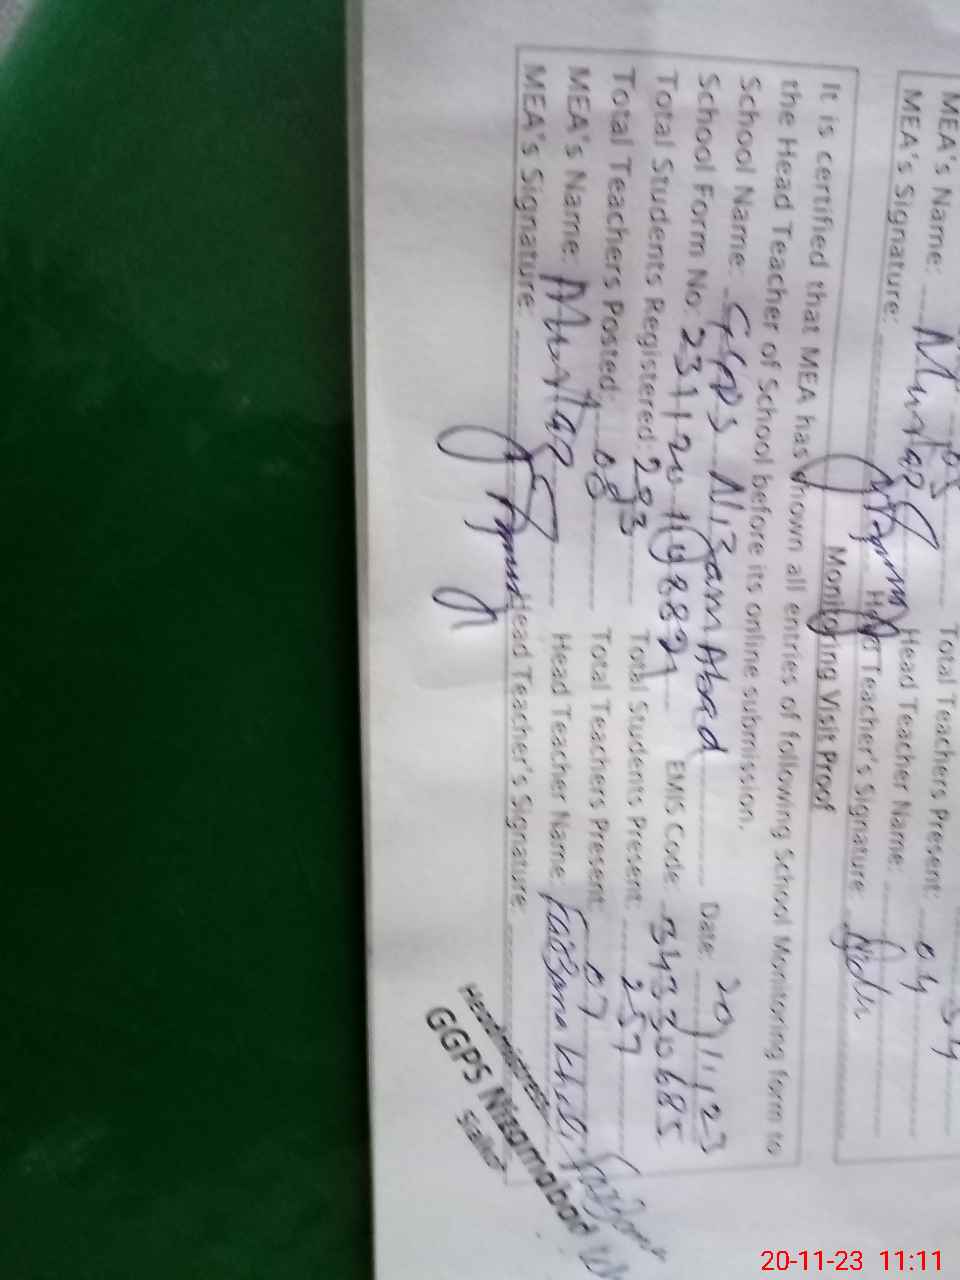 Total Teachers Present: 04
MEA's Name: Mumtaz Head Teacher Name:
MEA's Signature: Head Teacher's Signature:
Monitoring Visit Proof
It is certified that MEA has shown all entries of following School Monitoring form to
the Head Teacher of School before its online submission.
School Name: GGPS Nizam Abad Date: 20/11/23
School Form No: EMIS Code: 34330685
Total Students Registered 293 Total Students Present: 257
Total Teachers Posted: 08 Total Teachers Present: 07
MEA's Name: Mumtaz Head Teacher Name:
MEA's Signature: Head Teacher's Signature:
Headmistress
GGPS Nizamabad
Sialkot
20-11-23 11:11